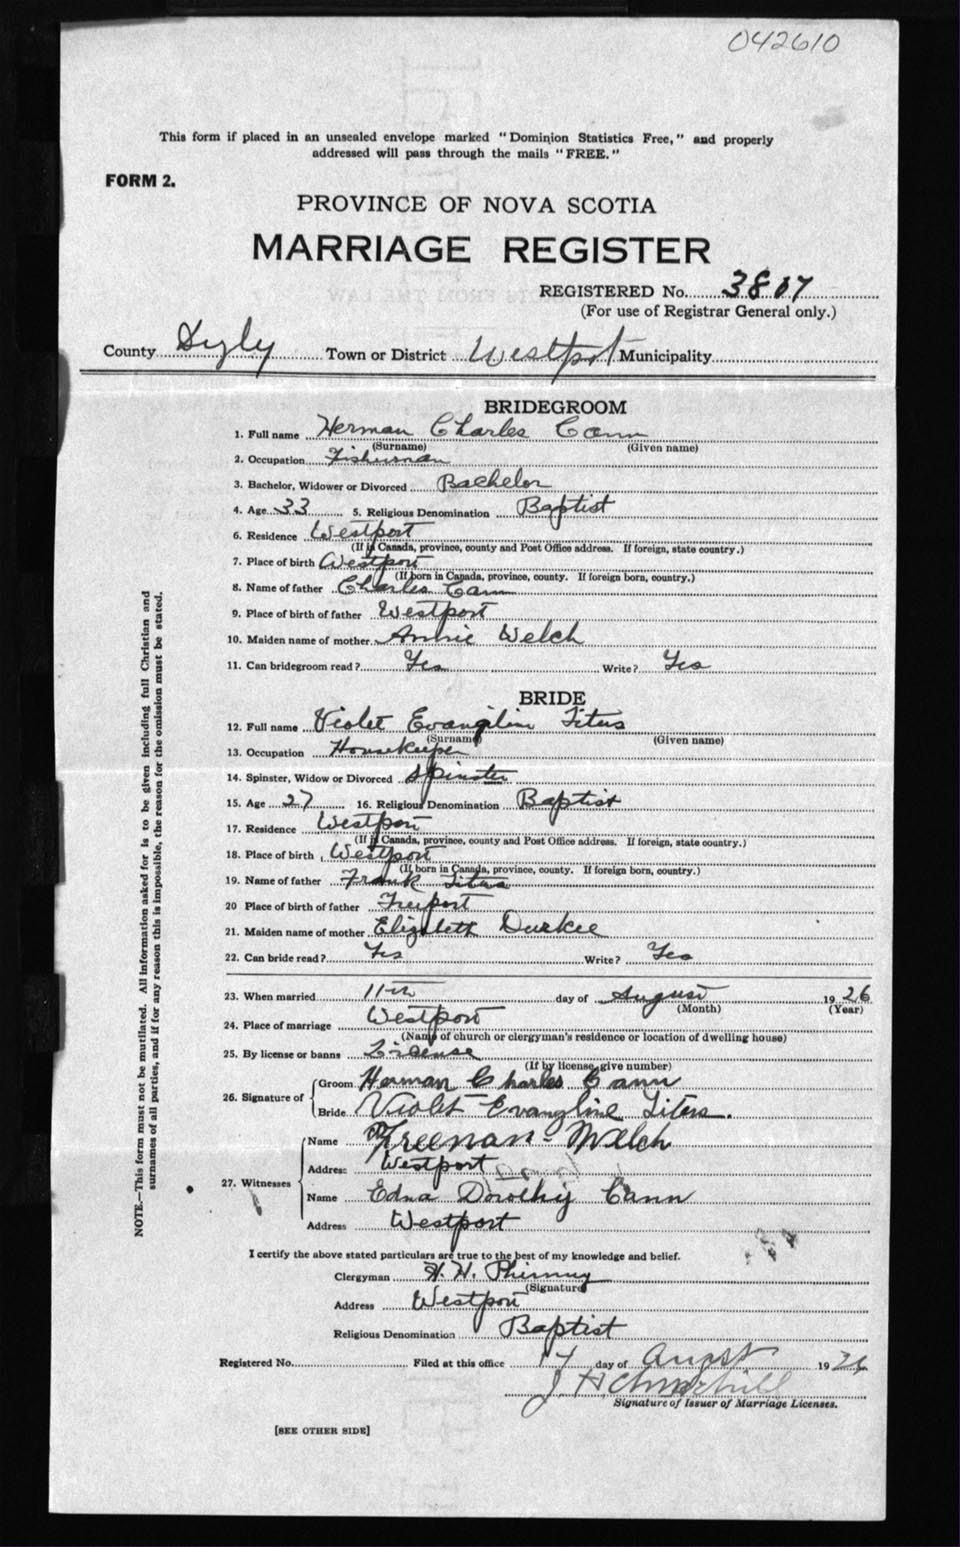 042610
This form if placed in an unsealed envelope marked "Dominion Statistics Free," and properly
addressed will pass through the mails "FREE."
FORM 2.
PROVINCE OF NOVA SCOTIA
MARRIAGE REGISTER
REGISTERED No. 3807
(For use of Registrar General only.)
County Digby Town or District Westport Municipality
BRIDEGROOM
1. Full name Herman Charles Cann
(Surname) (Given name)
2. Occupation Fisherman
3. Bachelor, Widower or Divorced Bachelor
4. Age 33 5. Religious Denomination Baptist
6. Residence Westport
(If in Canada, province, county and Post Office address. If foreign, state country.)
7. Place of birth Westport
(If born in Canada, province, county. If foreign born, country.)
8. Name of father Charles Cann
9. Place of birth of father Westport
10. Maiden name of mother Annie Welch
11. Can bridegroom read? Yes Write? Yes
BRIDE
12. Full name Violet Evangilin Titus
(Surname) (Given name)
13. Occupation Housekeeper
14. Spinster, Widow or Divorced Spinster
15. Age 27 16. Religious Denomination Baptist
17. Residence Westport
(If in Canada, province, county and Post Office address. If foreign, state country.)
18. Place of birth Westport
(If born in Canada, province, county. If foreign born, country.)
19. Name of father Frank Titus
20 Place of birth of father Freeport
21. Maiden name of mother Elizabeth Durkee
22. Can bride read? Yes Write? Yes
23. When married 11th day of August 1926
(Month) (Year)
24. Place of marriage Westport
(Name of church or clergyman's residence or location of dwelling house)
25. By license or banns License
(If by license, give number)
26. Signature of
Groom Herman Charles Cann
Bride Violet Evangline Titus.
27. Witnesses
Name Freeman Welch
Address Westport
Name Edna Dorothy Cann
Address Westport
I certify the above stated particulars are true to the best of my knowledge and belief.
Clergyman H. H. Phinney
(Signature)
Address Westport
Religious Denomination Baptist
Registered No. Filed at this office 17 day of August 1926
J. H. Churchill
Signature of Issuer of Marriage Licenses.
[SEE OTHER SIDE]
NOTE.—This form must not be mutilated. All information asked for is to be given including full Christian and
surnames of all parties, and if for any reason this is impossible, the reason for the omission must be stated.